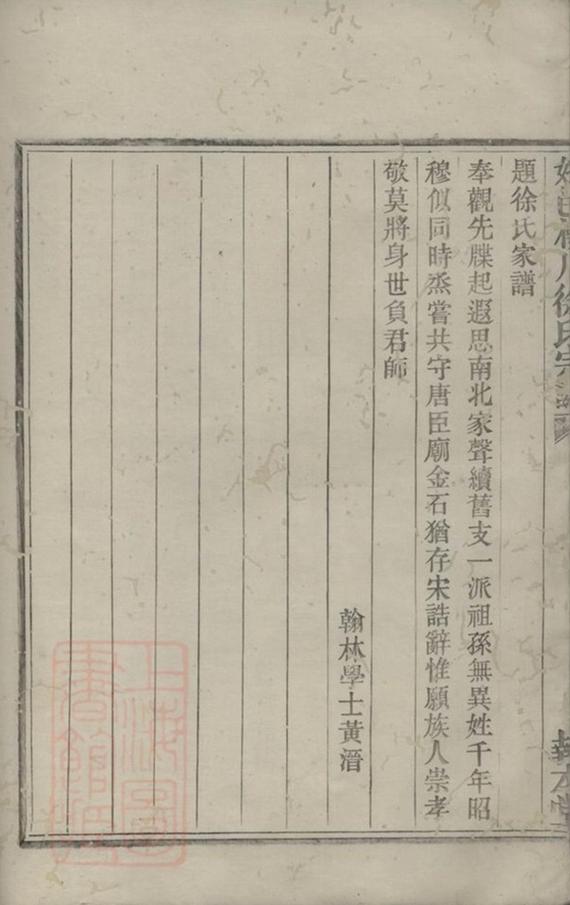 徐氏宗譜
題徐氏家譜
奉觀先牒起遐思南北家聲續舊支一派祖孫無異姓千年昭
穆似同時烝嘗共守唐臣廟金石猶存宋誥辭惟願族人崇孝
敬莫將身世負君師
翰林學士黃溍
上海圖書館藏